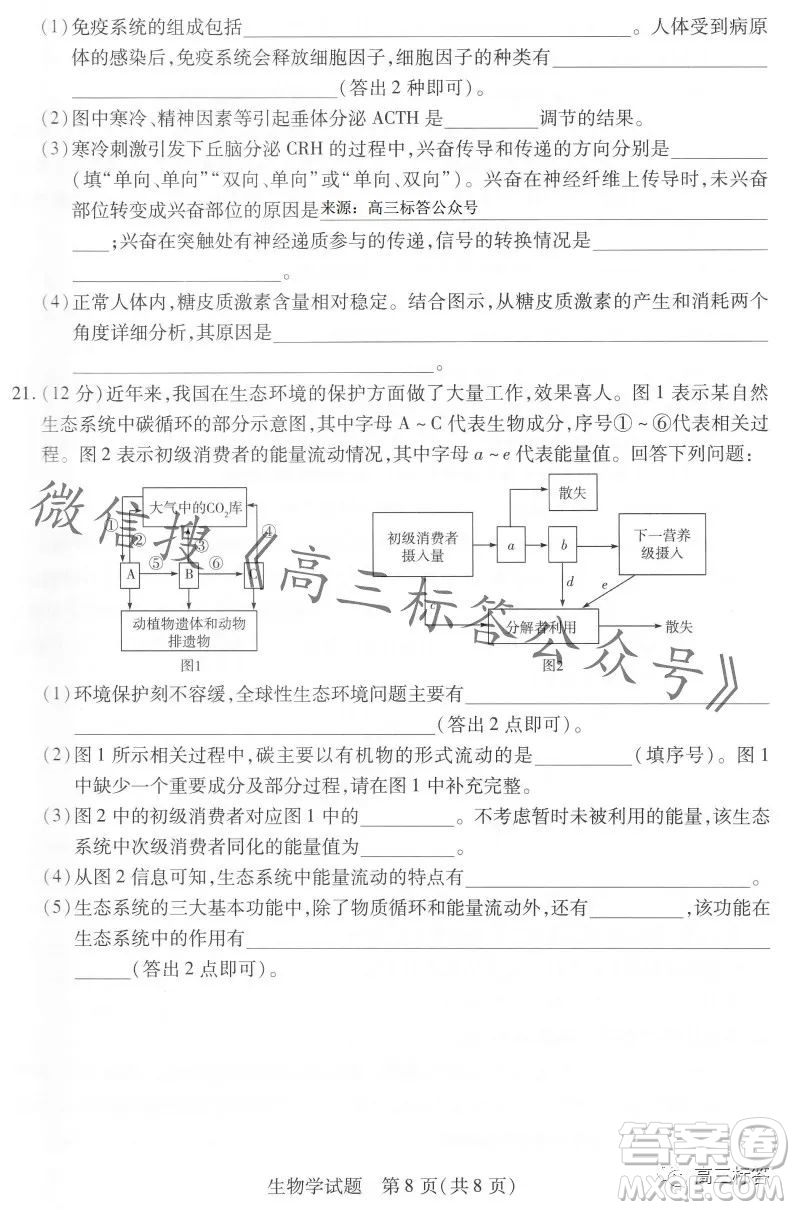 (1)免疫系统的组成包括________。人体受到病原
体的感染后,免疫系统会释放细胞因子,细胞因子的种类有________
________(答出2种即可)。
(2)图中寒冷、精神因素等引起垂体分泌ACTH是________调节的结果。
(3)寒冷刺激引发下丘脑分泌CRH的过程中,兴奋传导和传递的方向分别是________
(填“单向、单向”“双向、单向”或“单向、双向”)。兴奋在神经纤维上传导时,未兴奋
部位转变成兴奋部位的原因是来源:高三标答公众号
____;兴奋在突触处有神经递质参与的传递,信号的转换情况是________
________。
(4)正常人体内,糖皮质激素含量相对稳定。结合图示,从糖皮质激素的产生和消耗两个
角度详细分析,其原因是________
________。
21.(12分)近年来,我国在生态环境的保护方面做了大量工作,效果喜人。图1表示某自然
生态系统中碳循环的部分示意图,其中字母A~C代表生物成分,序号①~⑥代表相关过
程。图2表示初级消费者的能量流动情况,其中字母a~e代表能量值。回答下列问题:
大气中的CO₂库
① ② ③ ④
A ⑤ B ⑥ C
动植物遗体和动物
排遗物
图1
散失
初级消费者
摄入量
a
b
下一营养
级摄入
c
d
e
分解者利用
散失
图2
微信搜《高三标答公众号》
(1)环境保护刻不容缓,全球性生态环境问题主要有________
________(答出2点即可)。
(2)图1所示相关过程中,碳主要以有机物的形式流动的是________(填序号)。图1
中缺少一个重要成分及部分过程,请在图1中补充完整。
(3)图2中的初级消费者对应图1中的________。不考虑暂时未被利用的能量,该生态
系统中次级消费者同化的能量值为________。
(4)从图2信息可知,生态系统中能量流动的特点有________。
(5)生态系统的三大基本功能中,除了物质循环和能量流动外,还有________,该功能在
生态系统中的作用有________
____(答出2点即可)。
生物学试题 第8页(共8页)
高三标答
答案卷
MXQE.COM